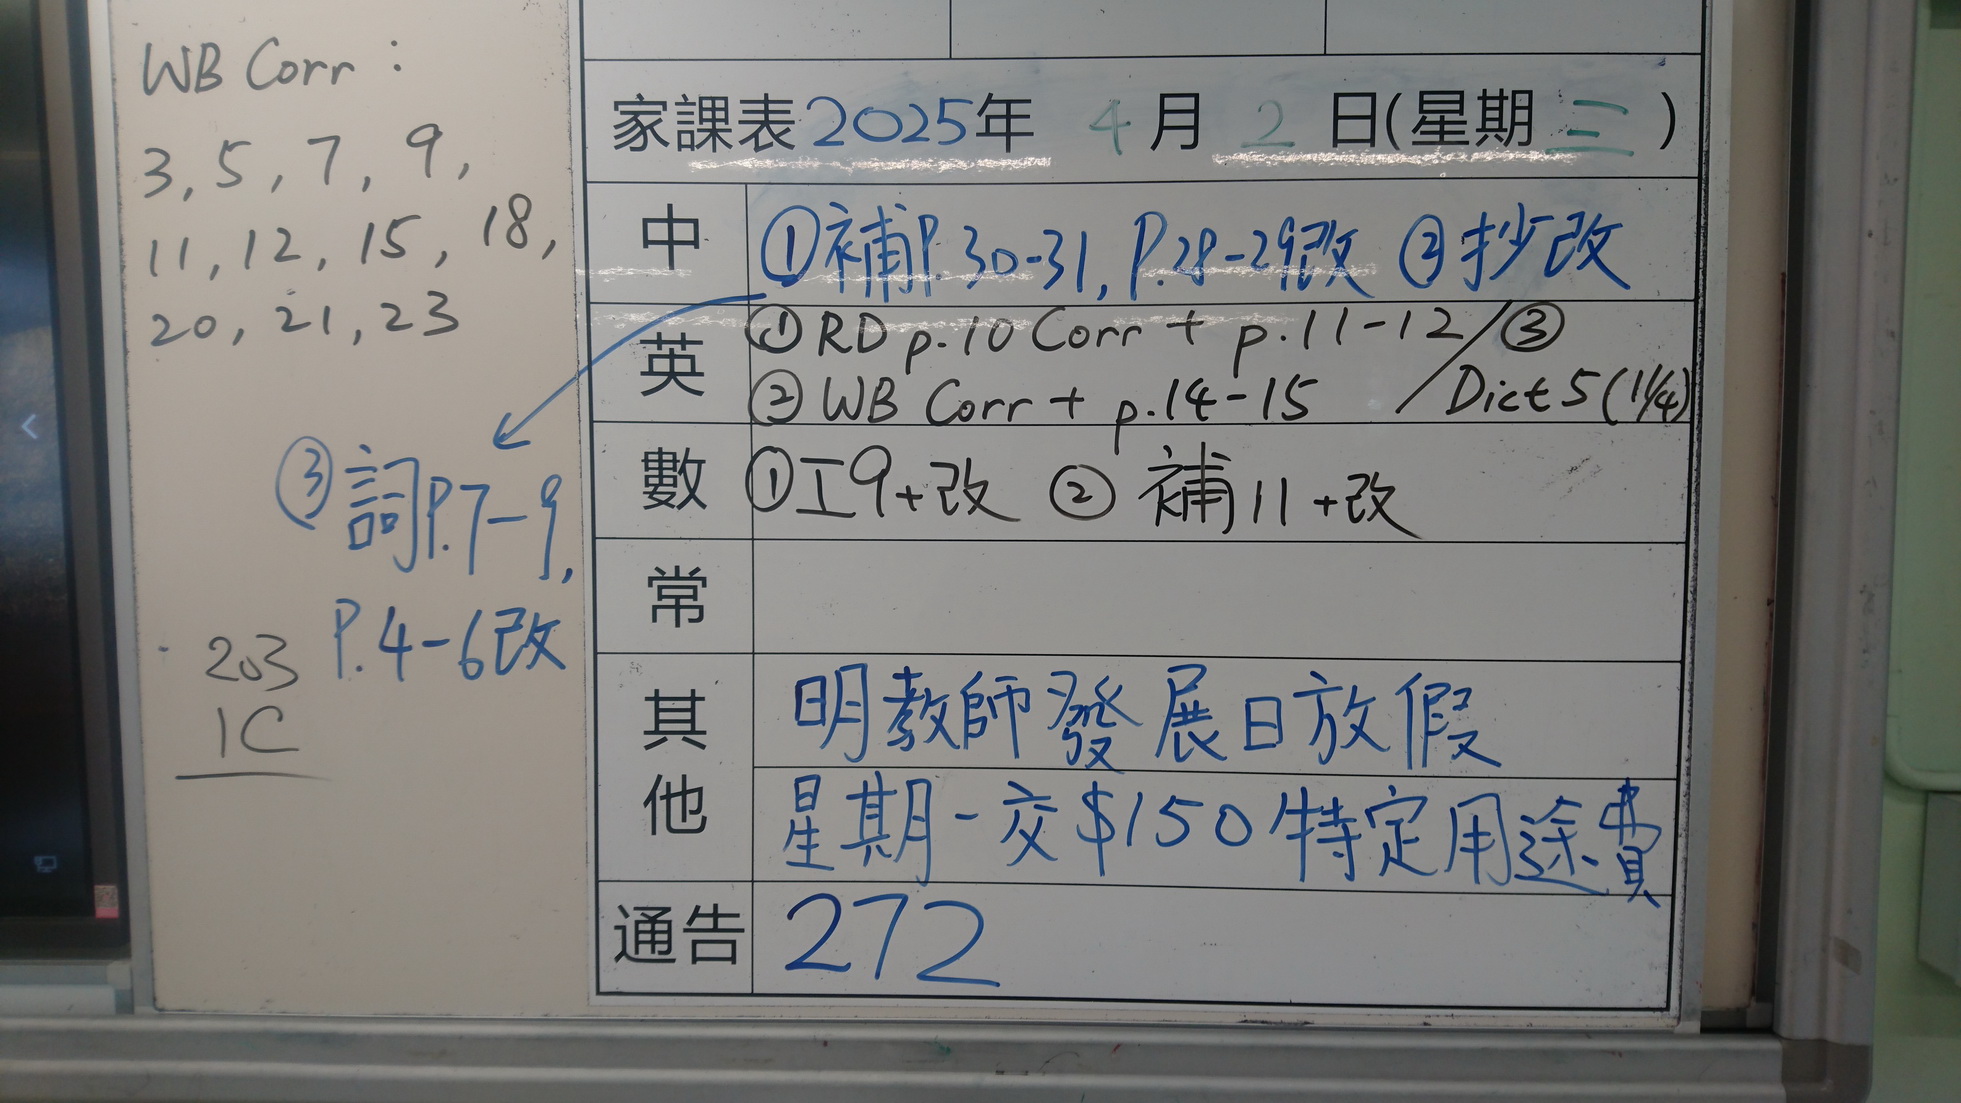 WB Corr :
3, 5, 7, 9,
11, 12, 15, 18,
20, 21, 23
③ 詞P.7-9,
P.4-6改
203
1C
家課表2025年 4月 2日(星期三)
中 ①補P.30-31, P.28-29改 ②抄改
英 ① RD p.10 Corr + p.11-12 / ③
② WB Corr + p.14-15 / Dict 5 (1/4)
數 ①工9+改 ② 補11+改
常
其他 明教師發展日放假
星期一交$150特定用途費
通告 272